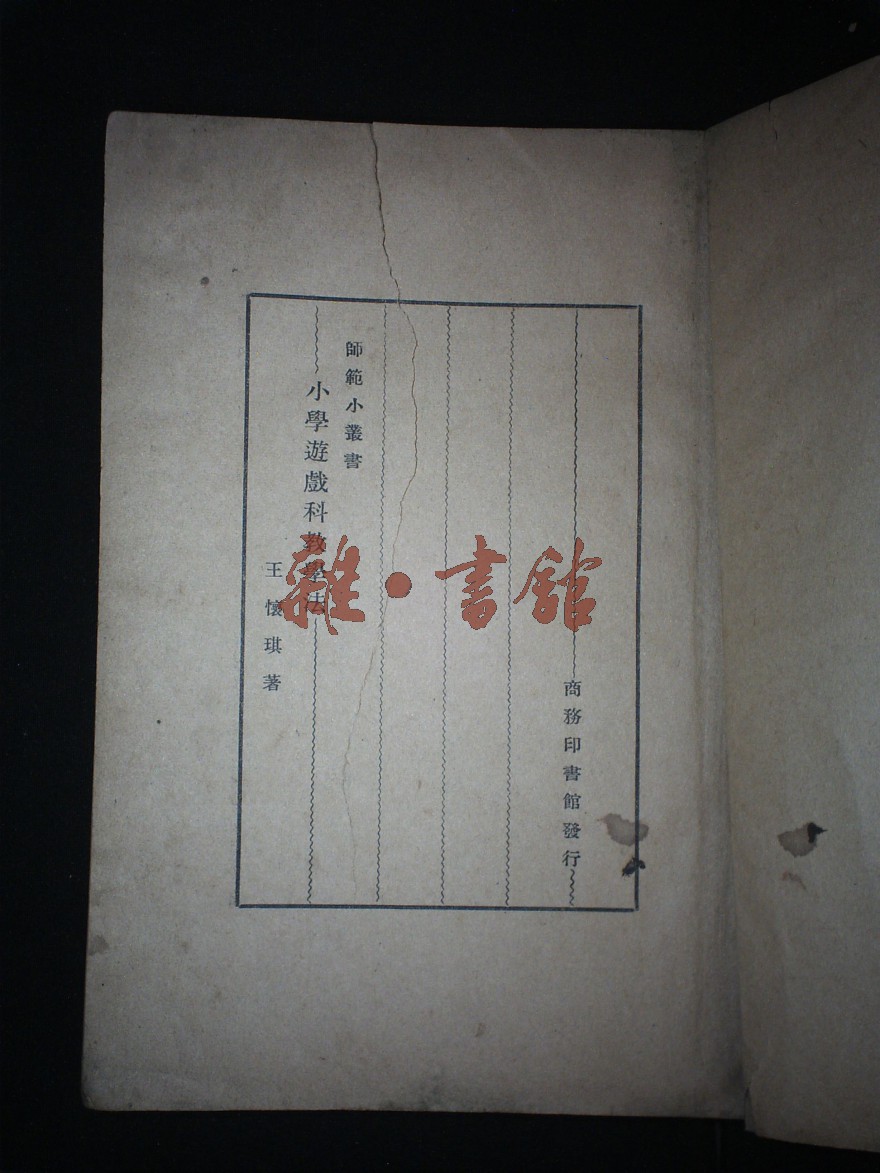 師範小叢書
小學遊戲科教學法
王懷琪著
商務印書館發行
雜·書館